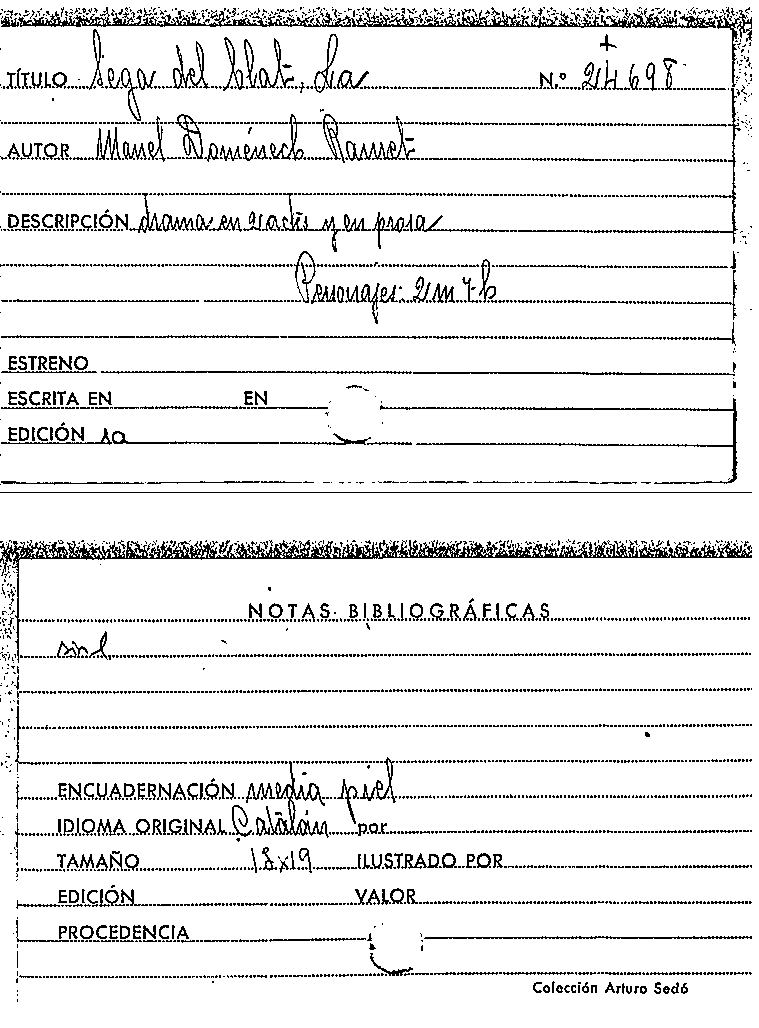 TÍTULO Sega del blat, La N.º 24698
+
AUTOR Manel Doménech Ramet
DESCRIPCIÓN drama en 2 actes y en prosa
Personajes: 2 m 7 h
ESTRENO
ESCRITA EN EN
EDICIÓN 1a
NOTAS BIBLIOGRÁFICAS
ENCUADERNACIÓN media piel
IDIOMA ORIGINAL Catalán por
TAMAÑO 13x19 ILUSTRADO POR
EDICIÓN VALOR
PROCEDENCIA
Colección Arturo Sedó